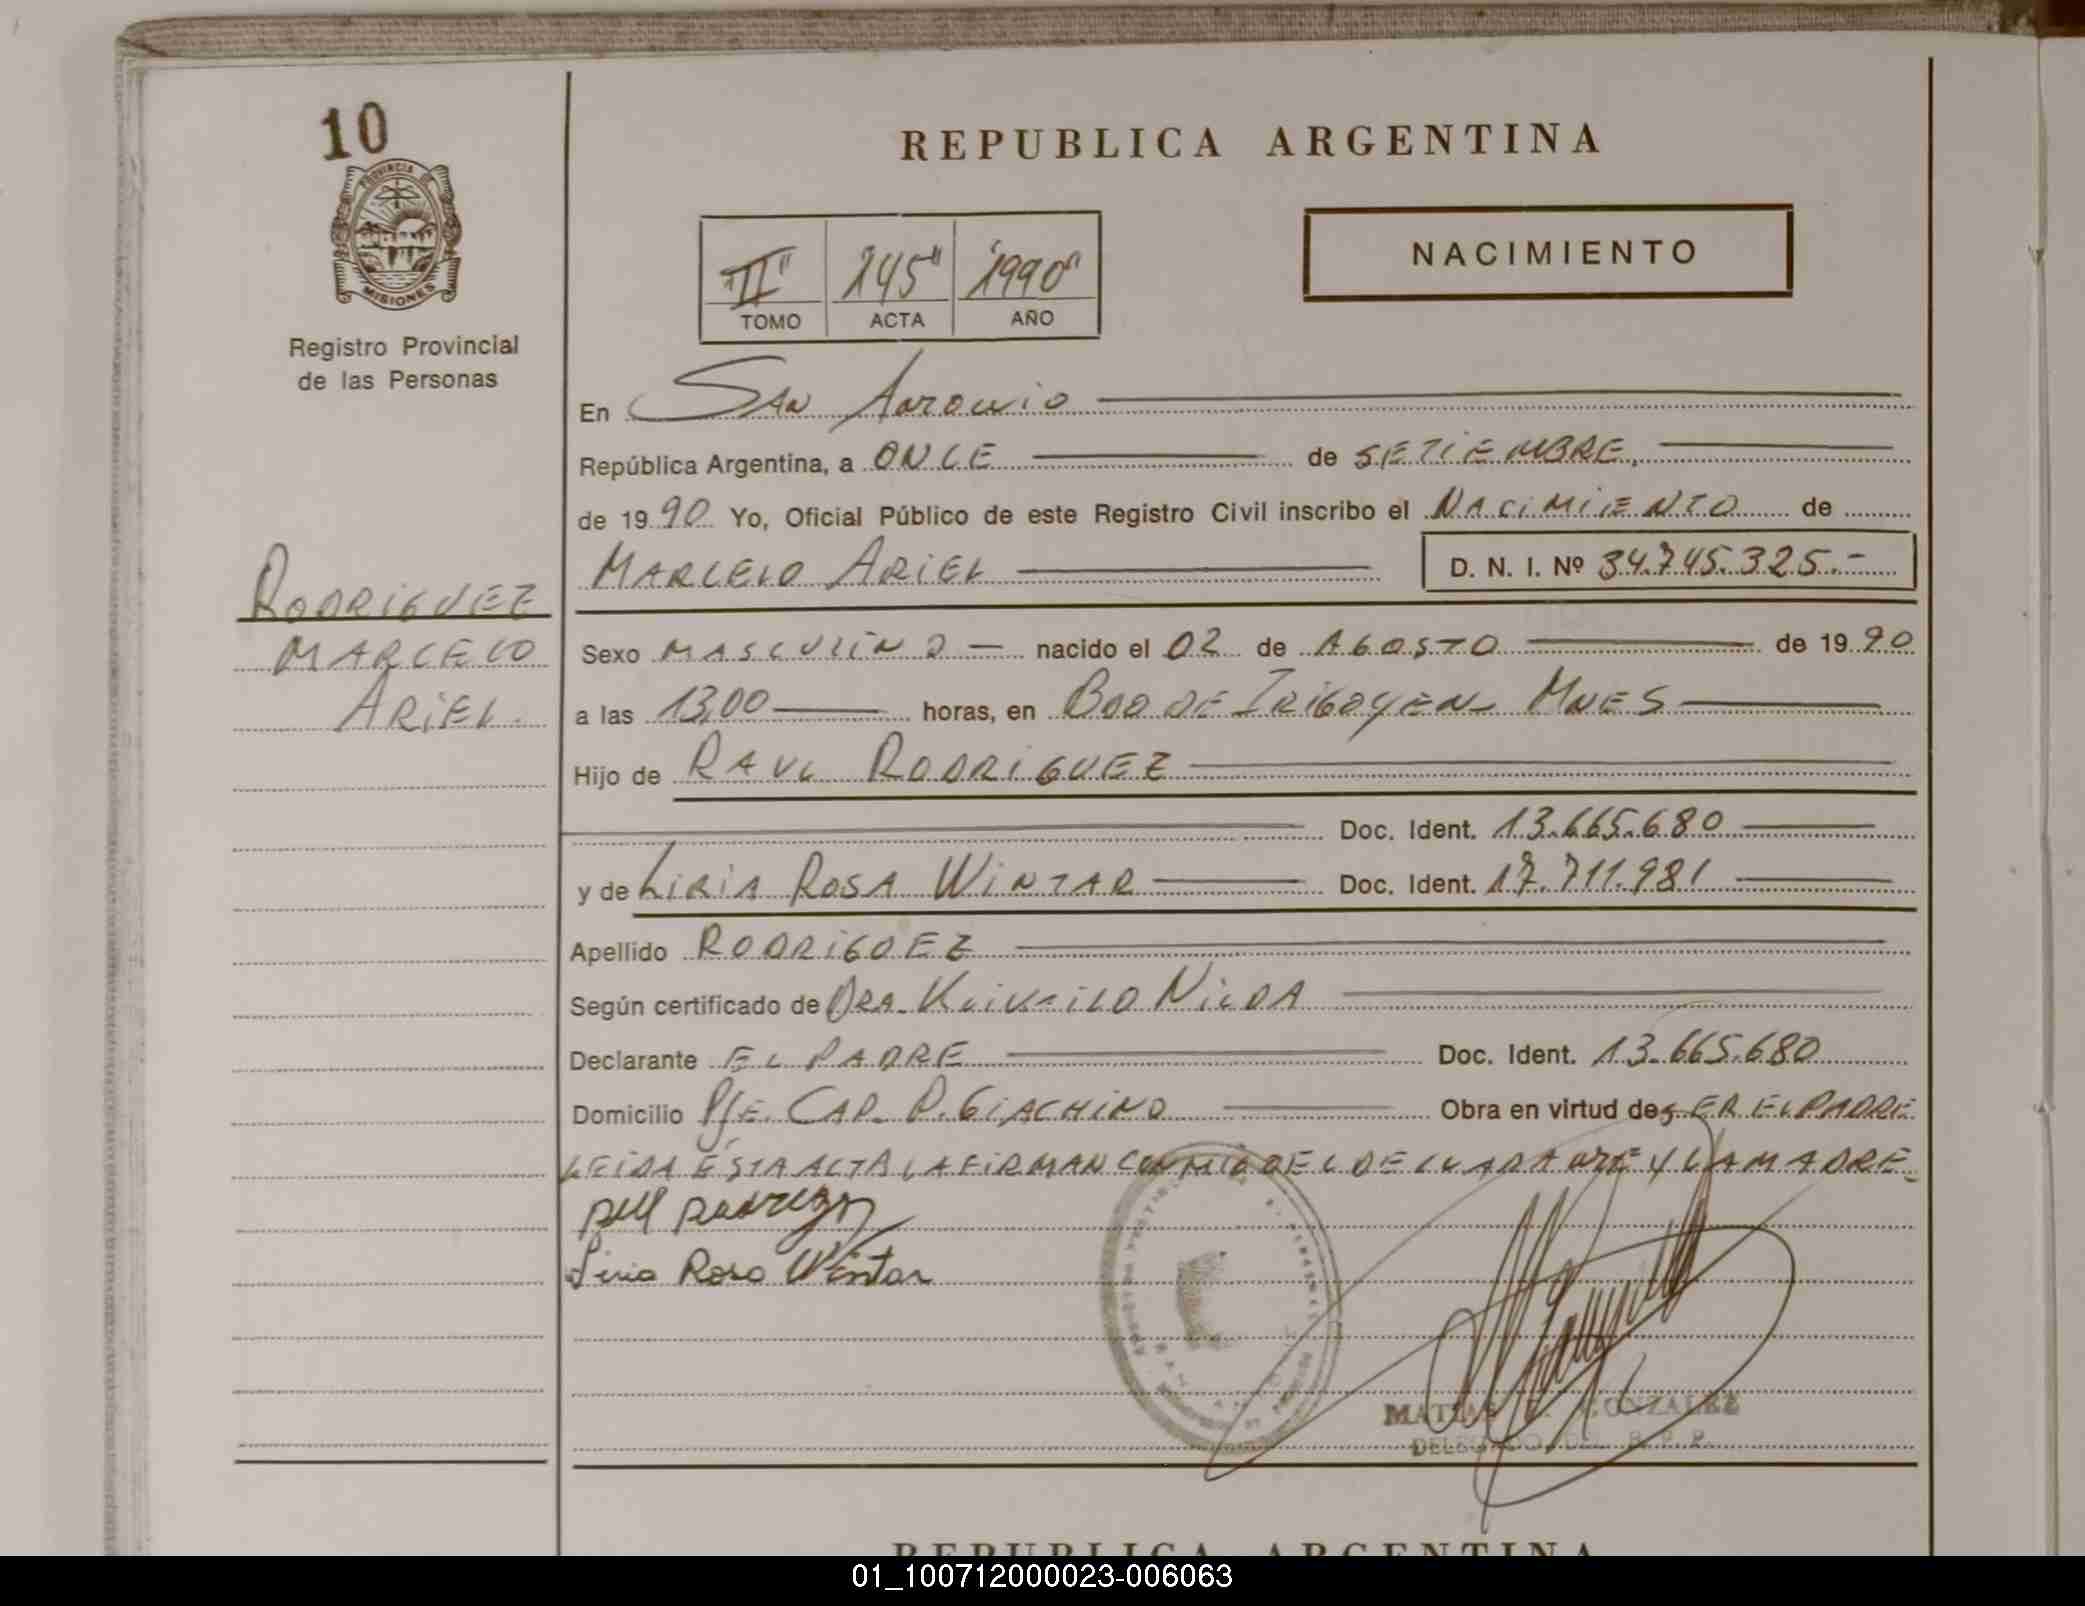 10
PROVINCIA DE
MISIONES
Registro Provincial
de las Personas
RODRIGUEZ
MARCELO
ARIEL.
REPUBLICA ARGENTINA
"II" 145" "1990"
TOMO ACTA AÑO
NACIMIENTO
En SAN ANTONIO
República Argentina, a ONCE de SETIEMBRE,
de 1990 Yo, Oficial Público de este Registro Civil inscribo el NACIMIENTO de
MARCELO ARIEL D. N. I. Nº 34.745.325.-
Sexo MASCULINO nacido el 02 de AGOSTO de 1990
a las 13,00 horas, en BDO DE IRIGOYEN - MNES
Hijo de RAUL RODRIGUEZ
Doc. Ident. 13.665.680
y de LIRIA ROSA WINTAR Doc. Ident. 17.711.981
Apellido RODRIGUEZ
Según certificado de DRA. NILDA
Declarante EL PADRE Doc. Ident. 13.665.680
Domicilio PJE. CAP. P. GIACHINO Obra en virtud de SER EL PADRE
LEIDA ESTA ACTA LA FIRMAN CONMIGO EL DECLARANTE Y LA MADRE
Liria Rosa Wintar
MATIAS GONZALEZ
DELEGADO DEL R. P. P.
REPUBLICA ARGENTINA
01_100712000023-006063